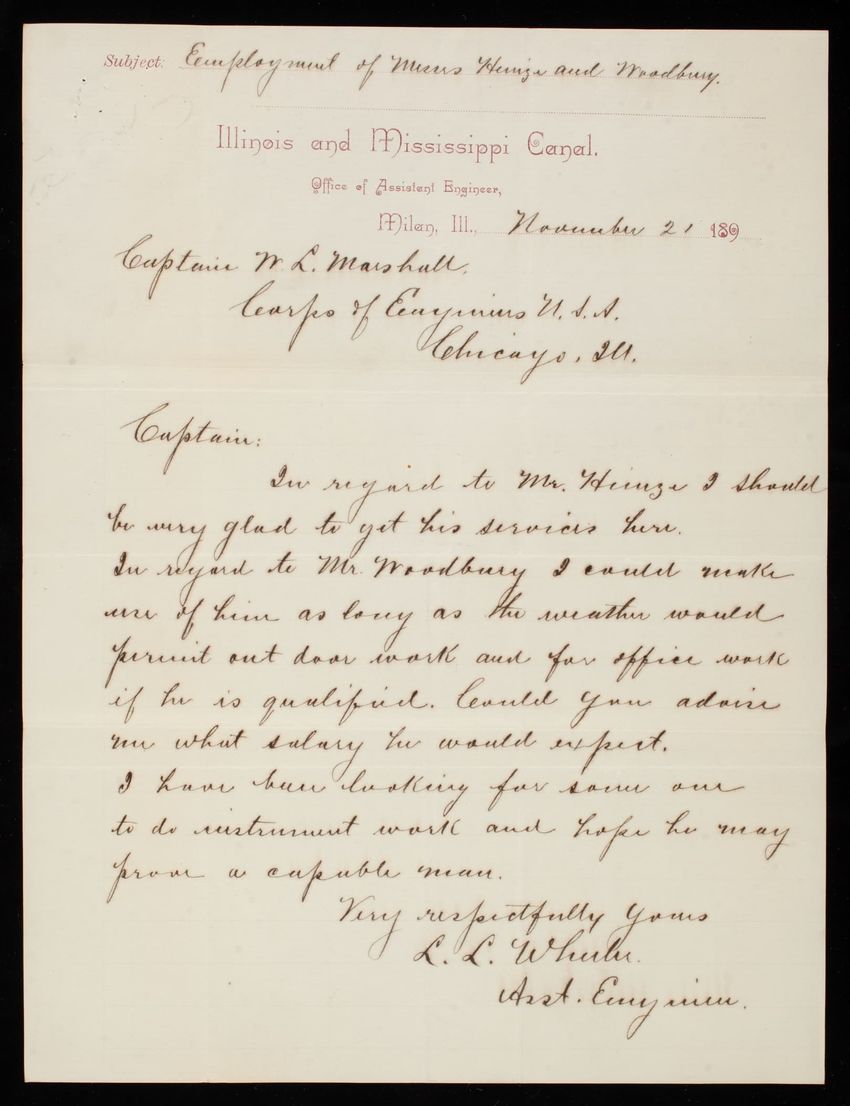 Subject: Employment of Messrs Heinze and Woodbury.
Illinois and Mississippi Canal.
Office of Assistant Engineer,
Milan, Ill., November 21 189
Captain W. L. Marshall.
Corps of Engineers U. S. A.
Chicago, Ill.
Captain:
In regard to Mr. Heinze I should
be very glad to get his services here.
In regard to Mr. Woodbury I could make
use of him as long as the weather would
permit out door work and for office work
if he is qualified. Could you advise
me what salary he would expect.
I have been looking for some one
to do instrument work and hope he may
prove a capable man.
Very respectfully yours
L. L. Wheeler.
Asst. Engineer.